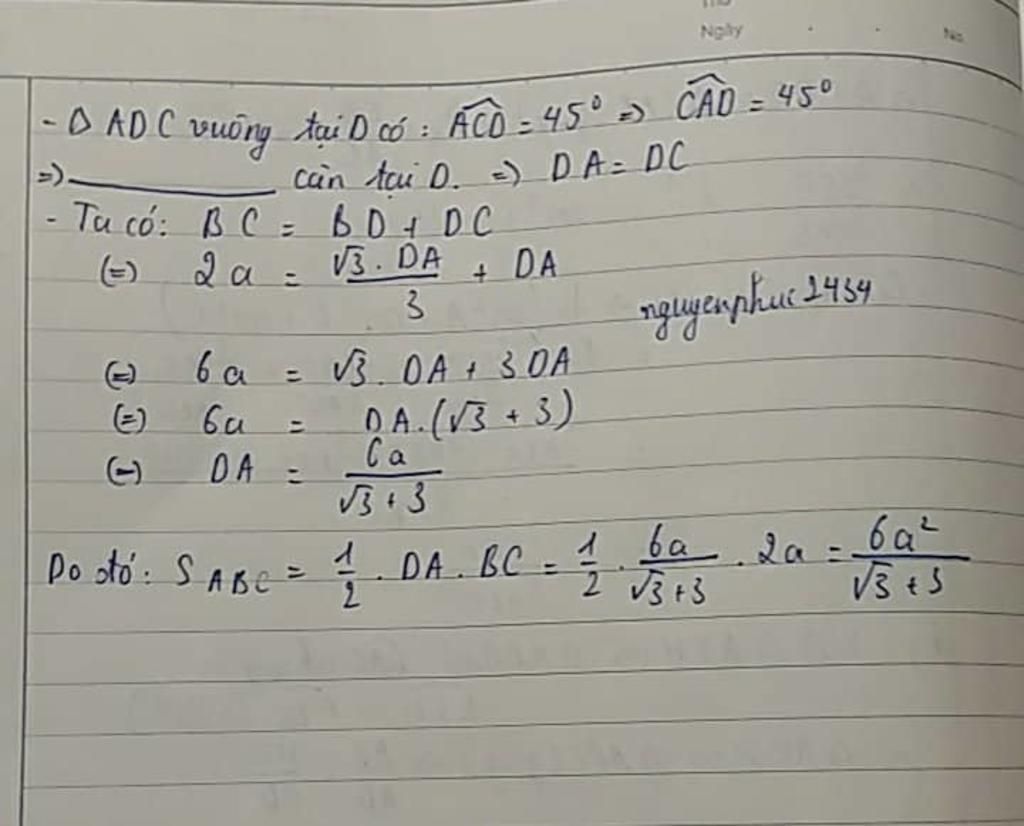 Thứ
Ngày . . No.
- Δ ADC vuông tại D có : ∠ACD = 45° ⇒ ∠CAD = 45°
⇒ ________ cân tại D. ⇒ DA = DC
- Ta có: BC = BD + DC
(=) 2a = √3 . DA / 3 + DA
nguyenphuc2434
(=) 6a = √3 . DA + 3DA
(=) 6a = DA.(√3 + 3)
(=) DA = 6a / √3 + 3
Do đó: S ABC = 1/2 . DA . BC = 1/2 . 6a / √3+3 . 2a = 6a² / √3 + 3